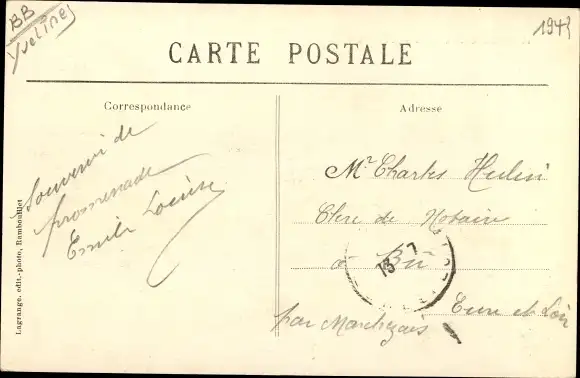 BB
Yvelines
194
CARTE POSTALE
Correspondance
Adresse
Souvenir de
promenade
Emile Louise
Mr Charles Hulin
Clerc de Notaire
à Bû
13 7
par Marchezais
Eure et Loir
Lagrange, edit.-photo, Rambouillet